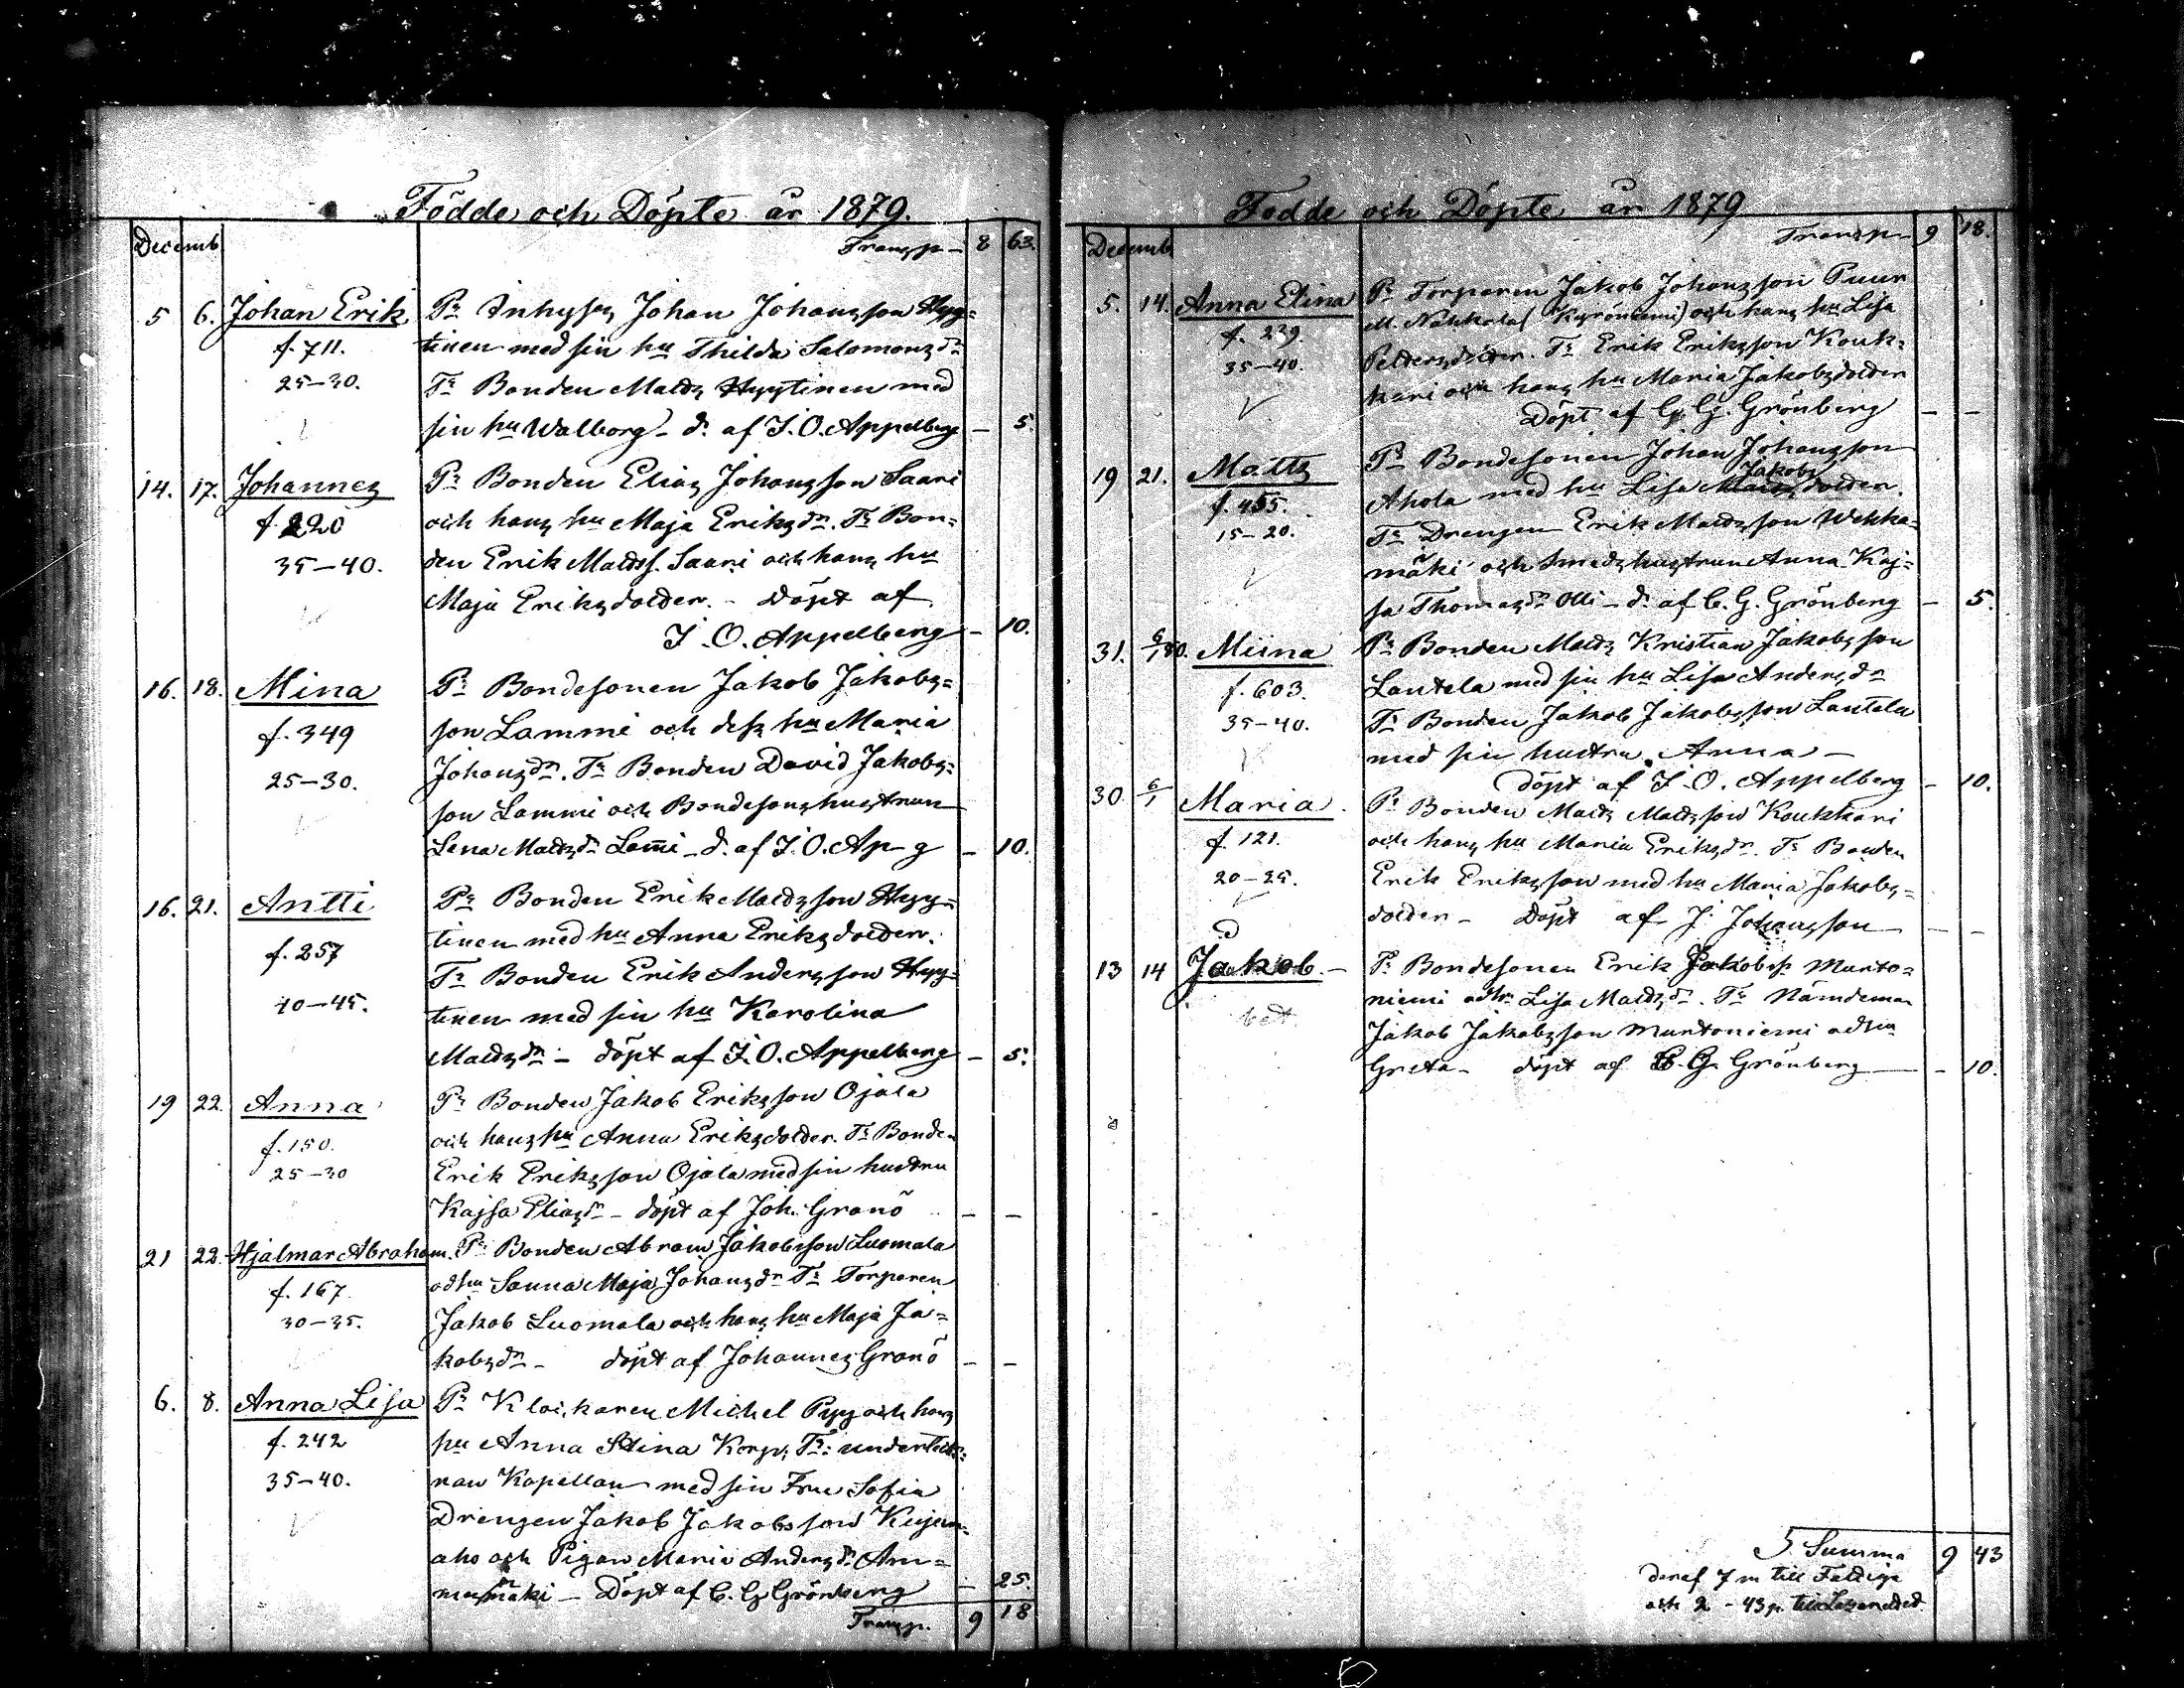 Födde och Döpte år 1879.
Decemb.
Transp. – 8 63.
5 6. Johan Erik Pr Inhyses Johan Johansson Hyy=
f. 711. tinen med sin hu Thilda Salomonsdr
25–30. Tr Bonden Matts Hyytinen med
sin hu Walborg – d. af J. O. Appelberg – 5.
14. 17. Johannes Pr Bonden Elias Johansson Saari
f. 220 och hans hu Maja Eriksdr. Tr Bon=
35–40. den Erik Mattss. Saari och hans hu
Maja Eriksdotter. – Döpt af
J. O. Appelberg – 10.
16. 18. Mina Pr Bondesonen Jakob Jakobs=
f. 349 son Lammi och dess hu Maria
25–30. Johansdr. Tr Bonden David Jakobs=
son Lammi och Bondesonshustrun
Lena Mattsdr Lam̄i – d. af J. O. Ap–g – 10.
16. 21. Antti Pr Bonden Erik Mattsson Hyy=
f. 257 tinen med hu Anna Eriksdotter.
Tr Bonden Erik Andersson Hyy=
40–45. tinen med sin hu Karolina
Mattsdr – döpt af J. O. Appelberg – 5.
19 22. Anna Pr Bonden Jakob Eriksson Ojala
f. 150. och hans hu Anna Eriksdotter. Tr Bonden
25–30 Erik Eriksson Ojala med sin hustru
Kajsa Eliasdr – döpt af Joh. Granö – –
21 22. Hjalmar Abraham. Pr Bonden Abram Jakobsson Luomala
f. 167. o dhu Sanna Maja Johansdr Tr Torparen
30–35. Jakob Luomala och hans hu Maja Ja=
kobsdr – döpt af Johannes Granö – –
6. 8. Anna Lisa Pr Klockaren Michel Pyy och hans
f. 242 hu Anna Stina Korp. Tr: underteck=
35–40. nan Kapellan med sin Fru Sofia
Drengen Jakob Jakobsson Kujan=
aho och Pigan Maria Andersdr Am=
mesmäki – Döpt af C. G. Grönberg – 25.
Transp. 9 18
Födde och Döpte år 1879
Decemb.
Transp – 9 18.
5. 14. Anna Elina Pr Torparen Jakob Johansson Puur
f. 239. M. Näkkälä (Kyröniemi) och hans hu Lisa
35–40. Pettersdotter. Tr Erik Eriksson Kouk=
kari och hans hu Maria Jakobsdotter
Döpt af C. G. Grönberg – –
19 21. Matts Pr Bondesonen Johan Johansson
Jakobs
f. 455. Ahola med hu Lisa Mattsdotter.
15–20. Tr Drengen Erik Mattsson Wehka=
mäki och Smedshustrun Anna Kaj=
sa Thomasdr Olli – d. af C. G. Grönberg – 5.
31. 6/1 80. Miina Pr Bonden Matts Kristian Jakobsson
f. 603. Lautela med sin hu Lisa Andersdr
35–40. Tr Bonden Jakob Jakobsson Lautela
med sin hustru Anna –
döpt af J. O. Appelberg – 10.
30. 6/1 Maria. Pr Bonden Matts Mattsson Koukkari
f. 121. och hans hu Maria Eriksdr. Tr Bonden
20–25. Erik Eriksson med hu Maria Jakobs=
dotter – Döpt af J. Johansson – –
13 14 Jakob. – Pr Bondesonen Erik Jakobss. Munto=
niemi o dhu Lisa Mattsdr. Tr Nämdeman
Jakob Jakobsson Muntoniemi o dhu
Greta – döpt af C. G. Grönberg – 10.
Summa 9 43
deraf 7 m till Fattige
och 2 – 43 p. till Lazarettet.